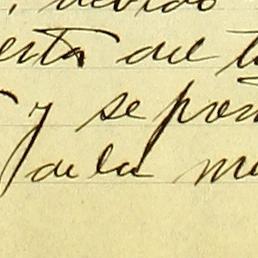 debido
esta del t
y se pon
de la me